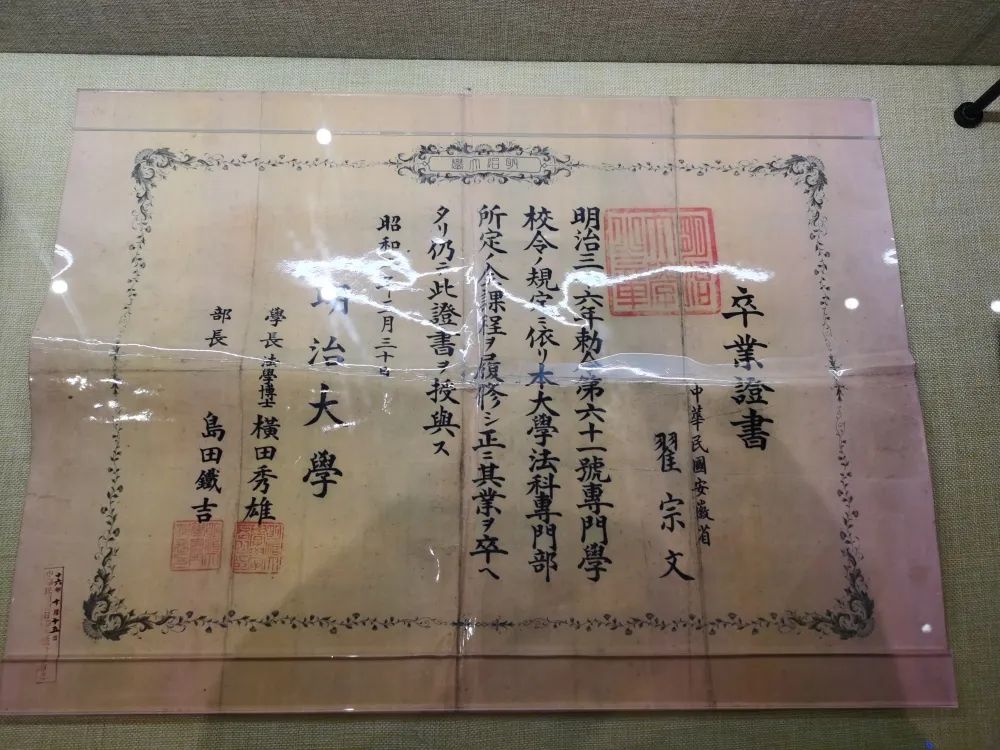 明治大學
卒業證書
中華民國安徽省
翟宗文
明治三 六年勅令第六十一號專門學
校令ノ規定ニ依リ本大學法科專門部
所定ノ全課程ヲ履修シ正ニ其業ヲ卒ヘ
タリ仍テ此證書ヲ授與ス
昭和 月三十日
明治大學
學長 法學博士 橫田秀雄
部長 島田鐵吉